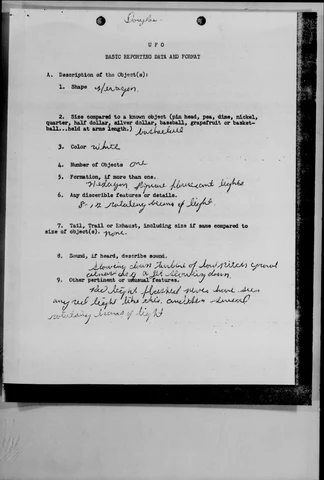 U F O
BASIC REPORTING DATA AND FORMAT
A. Description of the Object(s):
1. Shape Hexagon
2. Size compared to a known object (pin head, pea, dime, nickel,
quarter, half dollar, silver dollar, baseball, grapefruit or basket-
ball...held at arms length.) basketball
3. Color White
4. Number of Objects one
5. Formation, if more than one.
Hexagon flourescent lights
6. Any discernible features or details.
8-12 rotating beams of light.
7. Tail, Trail or Exhaust, including size if same compared to
size of object(s). none.
8. Sound, if heard, describe sound.
Slowing down turbine of low pitch
slowing down
9. Other pertinent or unusual features.
Red light flashed never have seen
any red light like this. and then several
rotating beams of light